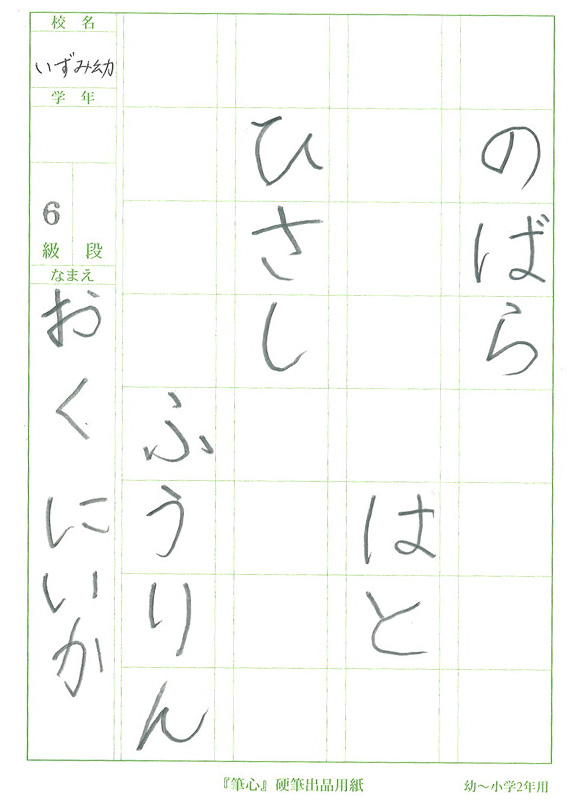 のばら
はと
ひさし
ふうりん
校名
いずみ幼
学年
6
級 段
なまえ
おくにいか
『筆心』硬筆出品用紙
幼～小学2年用